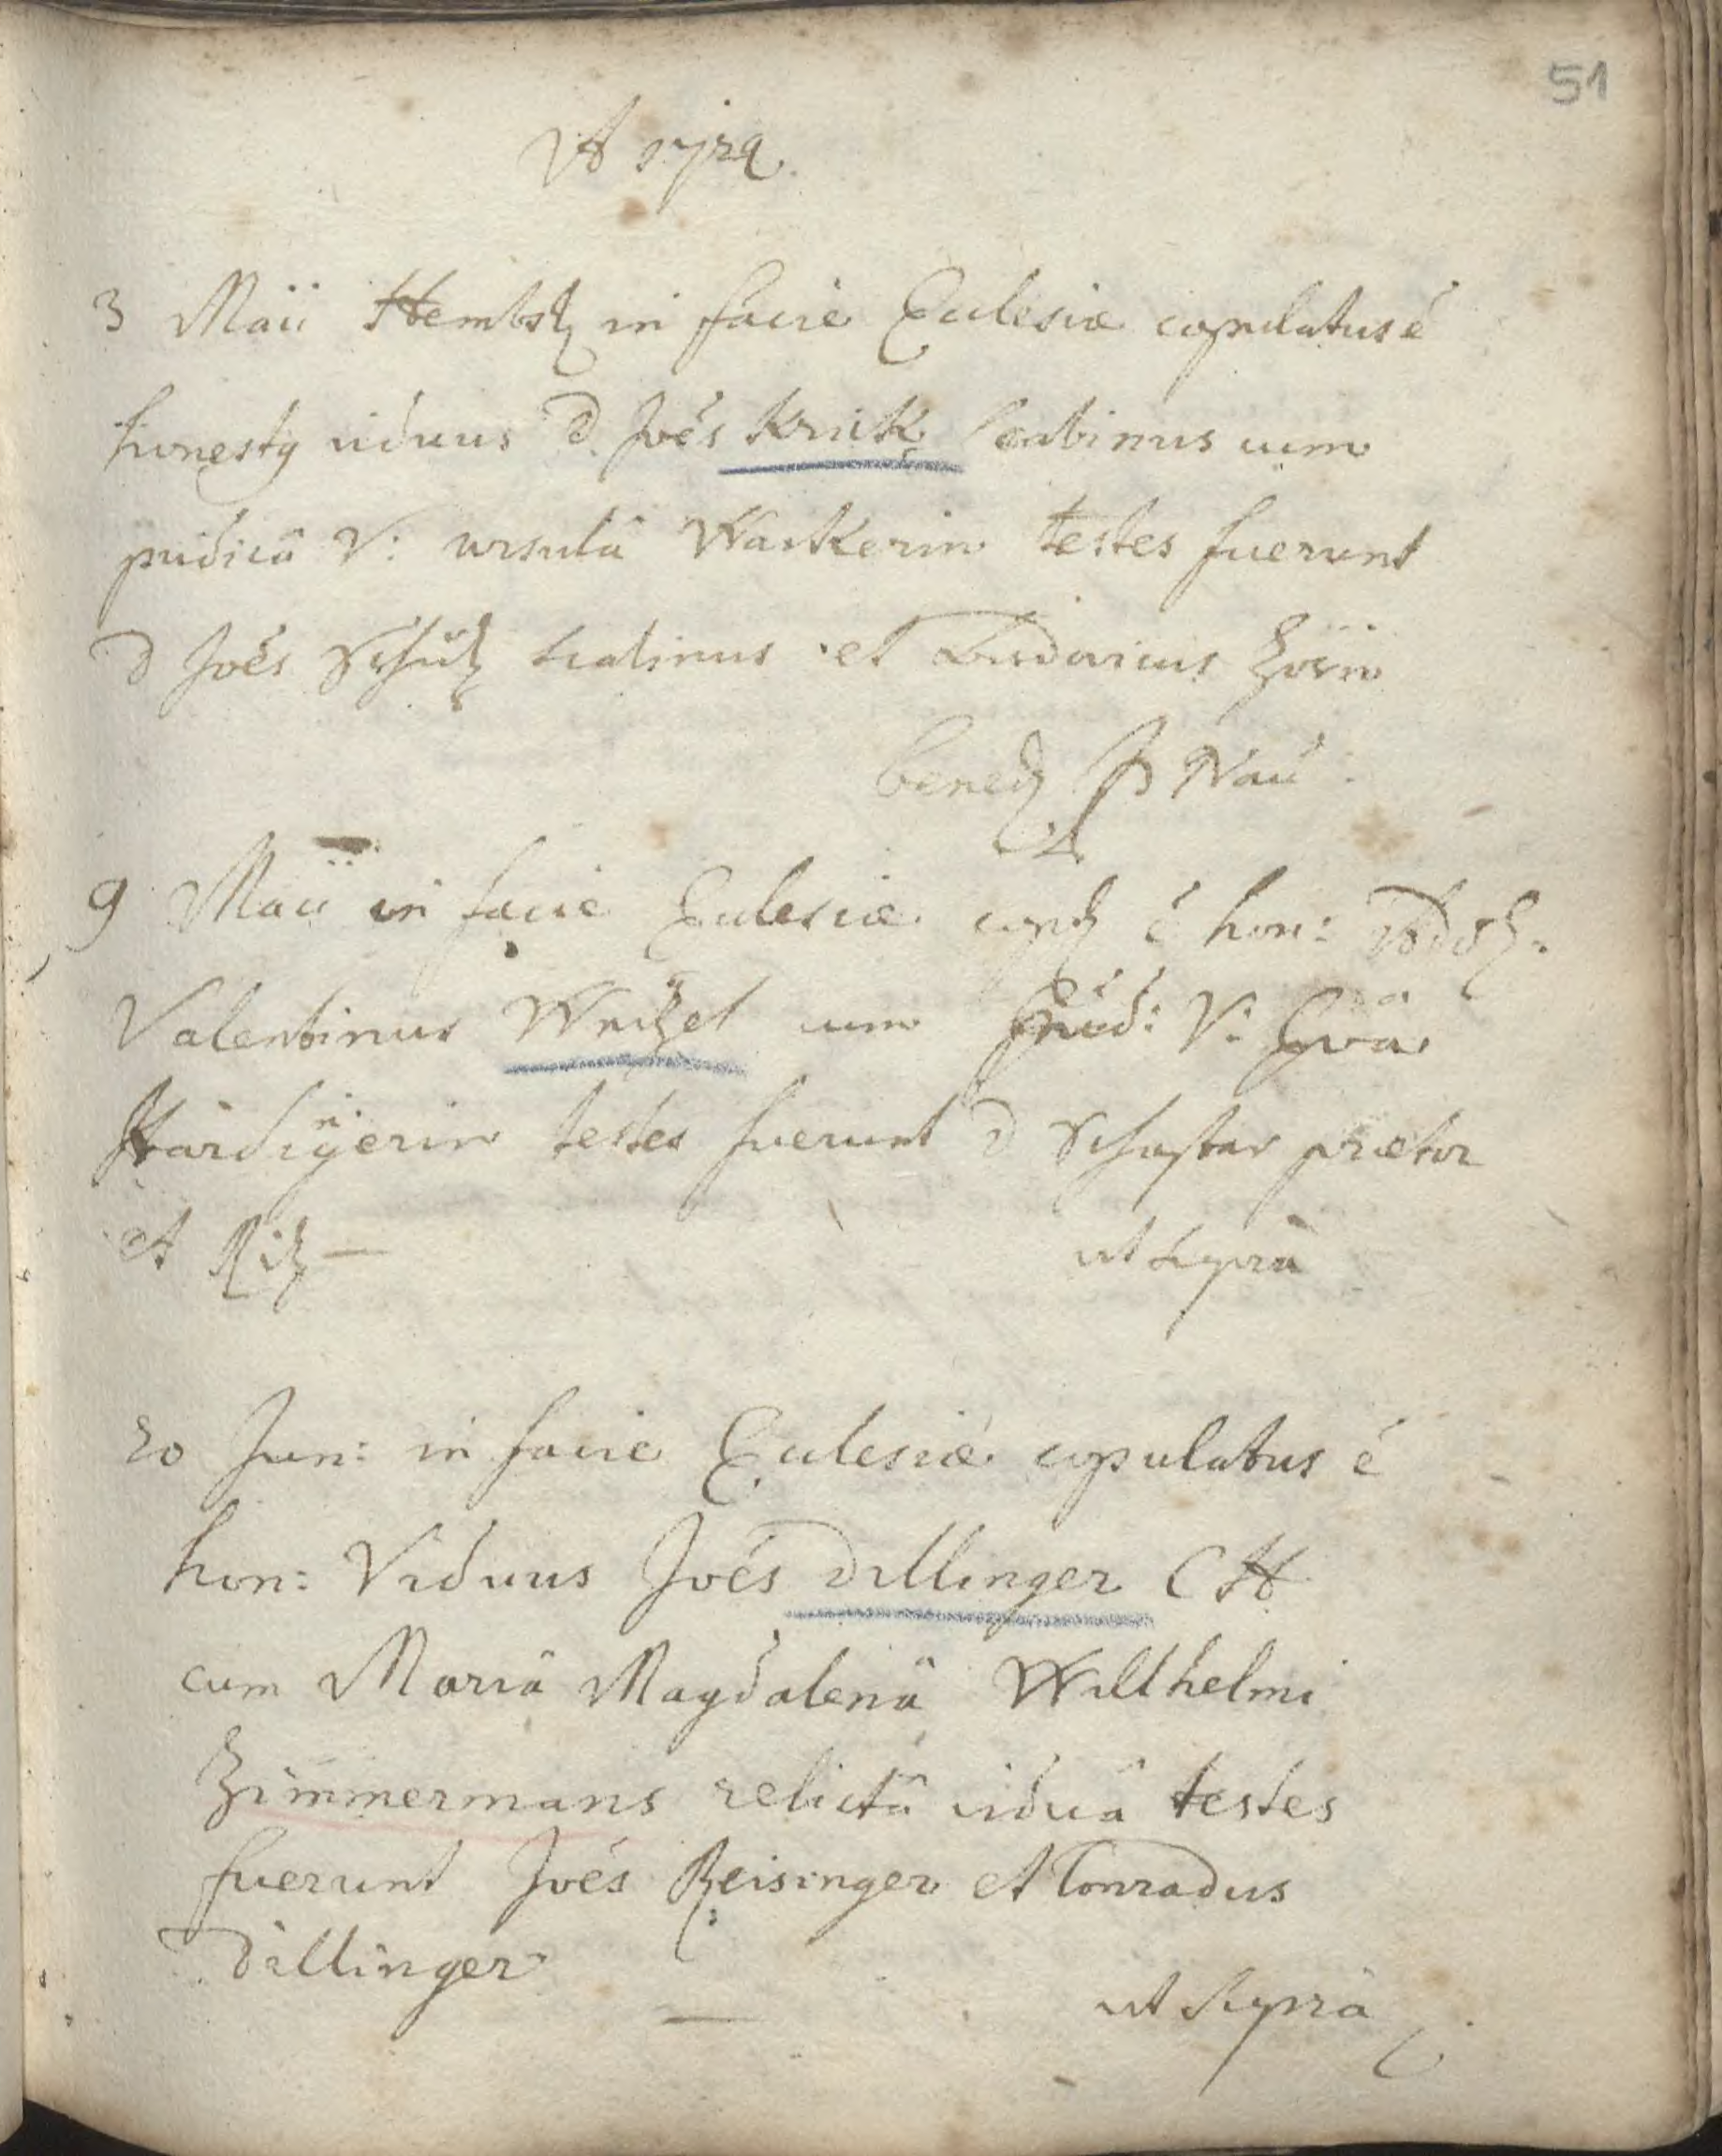 51
3 Maii in facie Ecclesiæ copulatus é
honestꝯ viduus D. Joês Krick Scabinus cum
pudicâ V: ursulâ Wackerin testes fuerunt
D Joês Schütz scabinus et Ludovicus Zorn
9 Maii in facie Ecclesiæ é hon:
Valentinus cum pud: V: Evâ
testes fuerunt D Schuster prætor
et Ritz — ut supra
20 Jun: in facie Ecclesiæ copulatus é
hon: Viduus Joês Dillinger C H
cum Mariâ Magdalenâ Willhelmi
Zimmermans relictâ viduâ testes
fuerunt Joês Reisinger et Conradus
Dillinger
— ut supra